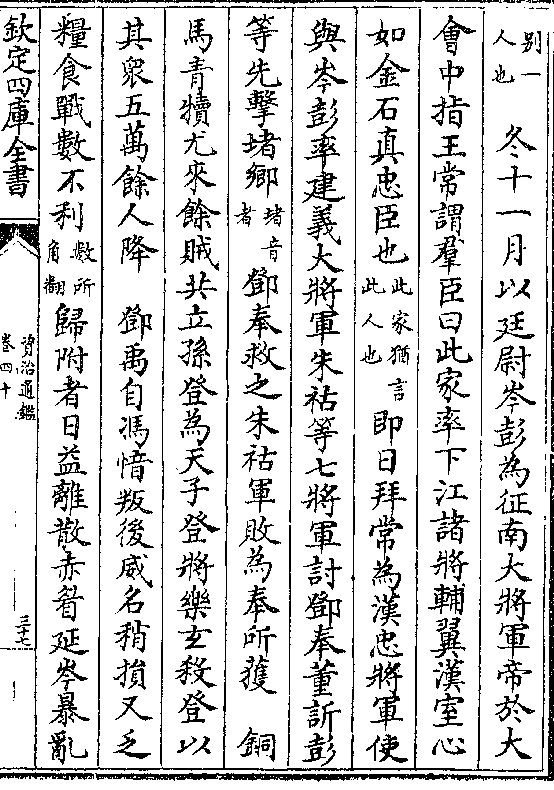 別一人也　冬十一月以廷尉岑彭為征南大將軍帝於大
會中指王常謂羣臣曰此家率下江諸將輔翼漢室心
如金石真忠臣也此家猶言此人也即日拜常為漢忠將軍使
與岑彭率建義大將軍朱祜等七將軍討鄧奉董訢彭
等先擊堵鄉堵音者鄧奉救之朱祜軍敗為奉所獲　銅
馬青犢尤來餘賊共立孫登為天子登將樂玄殺登以
其衆五萬餘人降　鄧禹自馮愔叛後威名稍損又乏
糧食戰數不利數所角翻歸附者日益離散赤眉延岑暴亂
欽定四庫全書
資治通鑑
卷四十
三十七